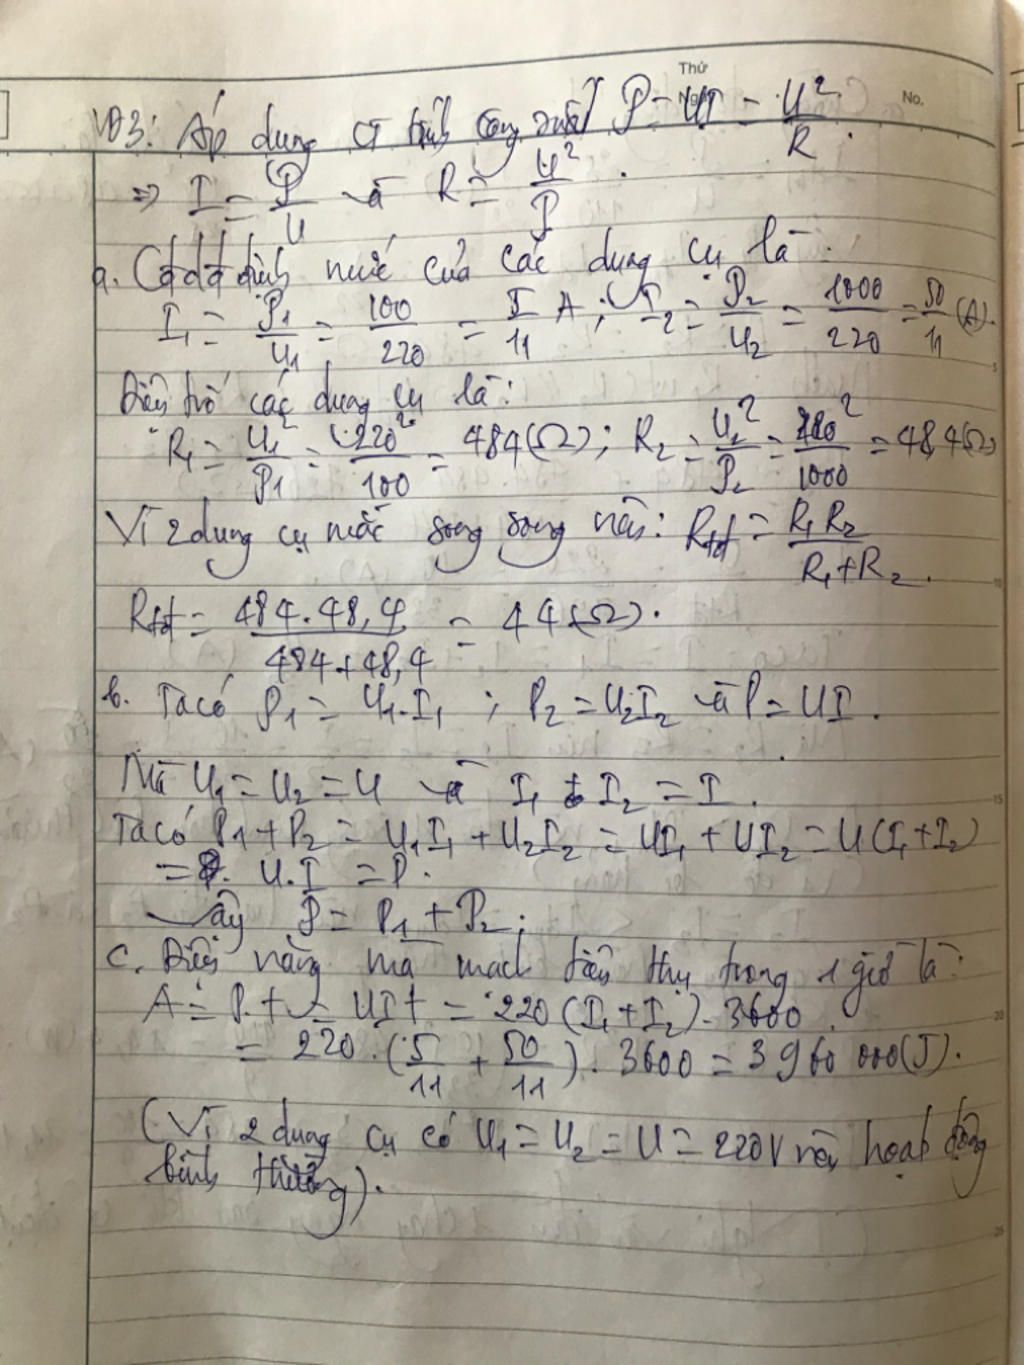 Thứ
Ngày
No.
VD3: Áp dụng CT tính công suất P = UI = U²/R.
=> I = P/U và R = U²/P.
a. Cđdđ định mức của các dụng cụ là:
I₁ = P₁/U₁ = 100/220 = 5/11 A; I₂ = P₂/U₂ = 1000/220 = 50/11 (A).
Điện trở các dụng cụ là:
R₁ = U₁²/P₁ = 220²/100 = 484(Ω); R₂ = U₂²/P₂ = 220²/1000 = 48,4(Ω)
Vì 2 dụng cụ mắc song song nên: Rtđ = R₁R₂/R₁+R₂.
Rtđ = 484.48,4/484+48,4 = 44(Ω).
b. Ta có P₁ = U₁.I₁; P₂ = U₂I₂ và P = UI.
Mà U₁ = U₂ = U và I₁ + I₂ = I.
Ta có P₁ + P₂ = U₁I₁ + U₂I₂ = UI₁ + UI₂ = U(I₁+I₂)
= U.I = P.
Vậy P = P₁ + P₂.
c. Điện năng mà mạch tiêu thụ trong 1 giờ là:
A = P.t = UIt = 220(I₁+I₂).3600.
= 220.(5/11 + 50/11).3600 = 3960 000(J).
(Vì 2 dụng cụ có U₁ = U₂ = U = 220V nên hoạt động
bình thường).